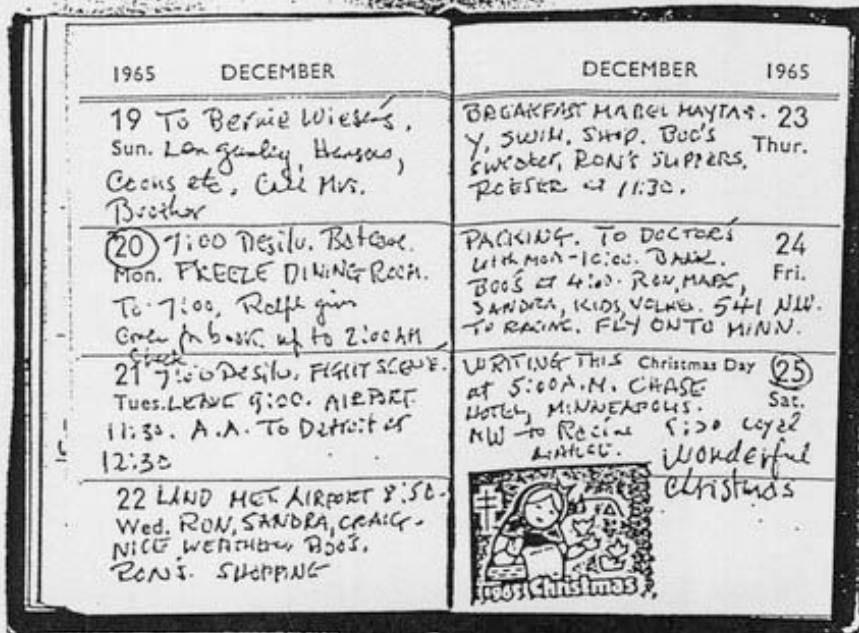 1965 DECEMBER
19 To Bernie
Sun.
etc. Call Mrs.
Brother
20 7:00 Desilu. Batcave.
Mon. FREEZE DINING ROOM.
To 7:00,
up to 2:00 AM
21 7:00 Desilu. FIGHT SCENE.
Tues. LEAVE 9:00. AIRPORT
11:30. A.A. To Detroit at
12:30
22 LAND MET. AIRPORT 8:50.
Wed. RON, SANDRA, CRAIG.
NICE WEATHER, BOO'S,
RON'S. SHOPPING
DECEMBER 1965
BREAKFAST MABEL 23
Y, SWIM, SHOP. BOO'S Thur.
SWEATER, RON'S SLIPPERS,
ROESER at 11:30.
PACKING. TO DOCTOR'S 24
with MOM-10:00. BANK. Fri.
BOO'S at 4:00. RON,
SANDRA, KIDS, 541 NW.
TO RACINE. FLY ONTO MINN.
WRITING THIS Christmas Day 25
at 5:00 A.M. CHASE Sat.
HOTEL, MINNEAPOLIS.
NW to Racine
wonderful
Christmas
1965 Christmas